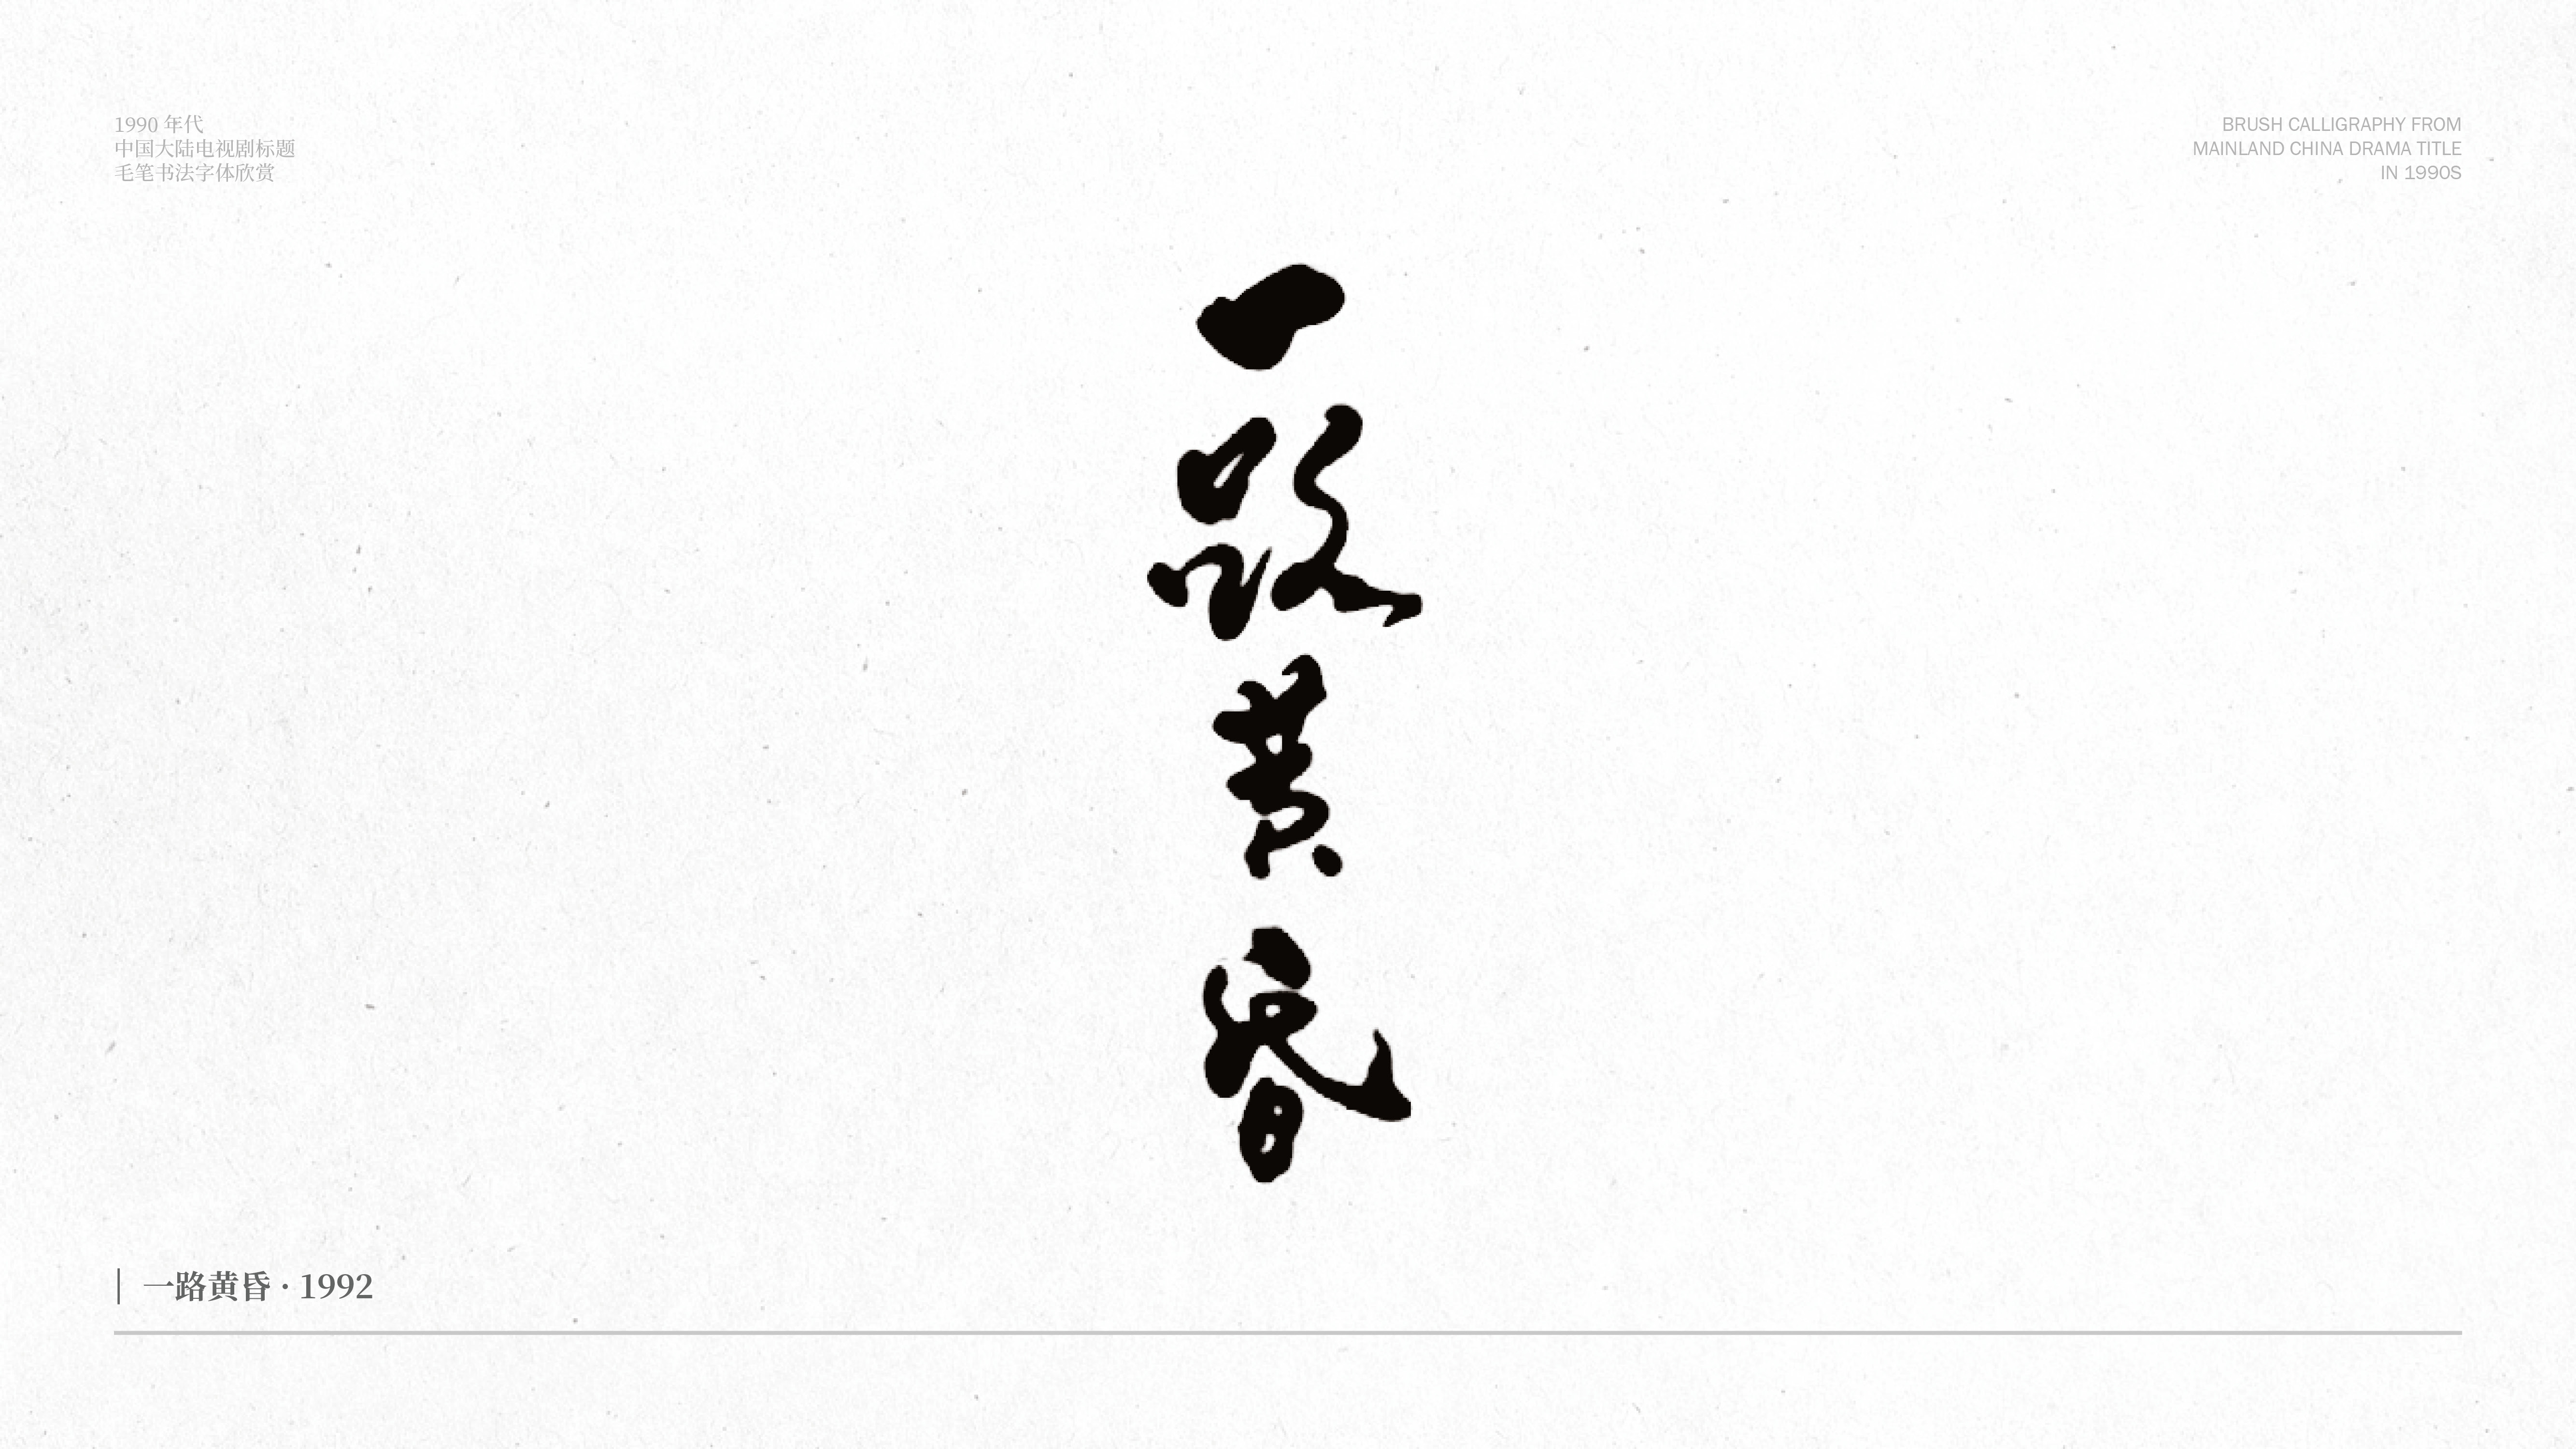 1990 年代
中国大陆电视剧标题
毛笔书法字体欣赏
BRUSH CALLIGRAPHY FROM
MAINLAND CHINA DRAMA TITLE
IN 1990S
一路黄昏
一路黄昏 · 1992